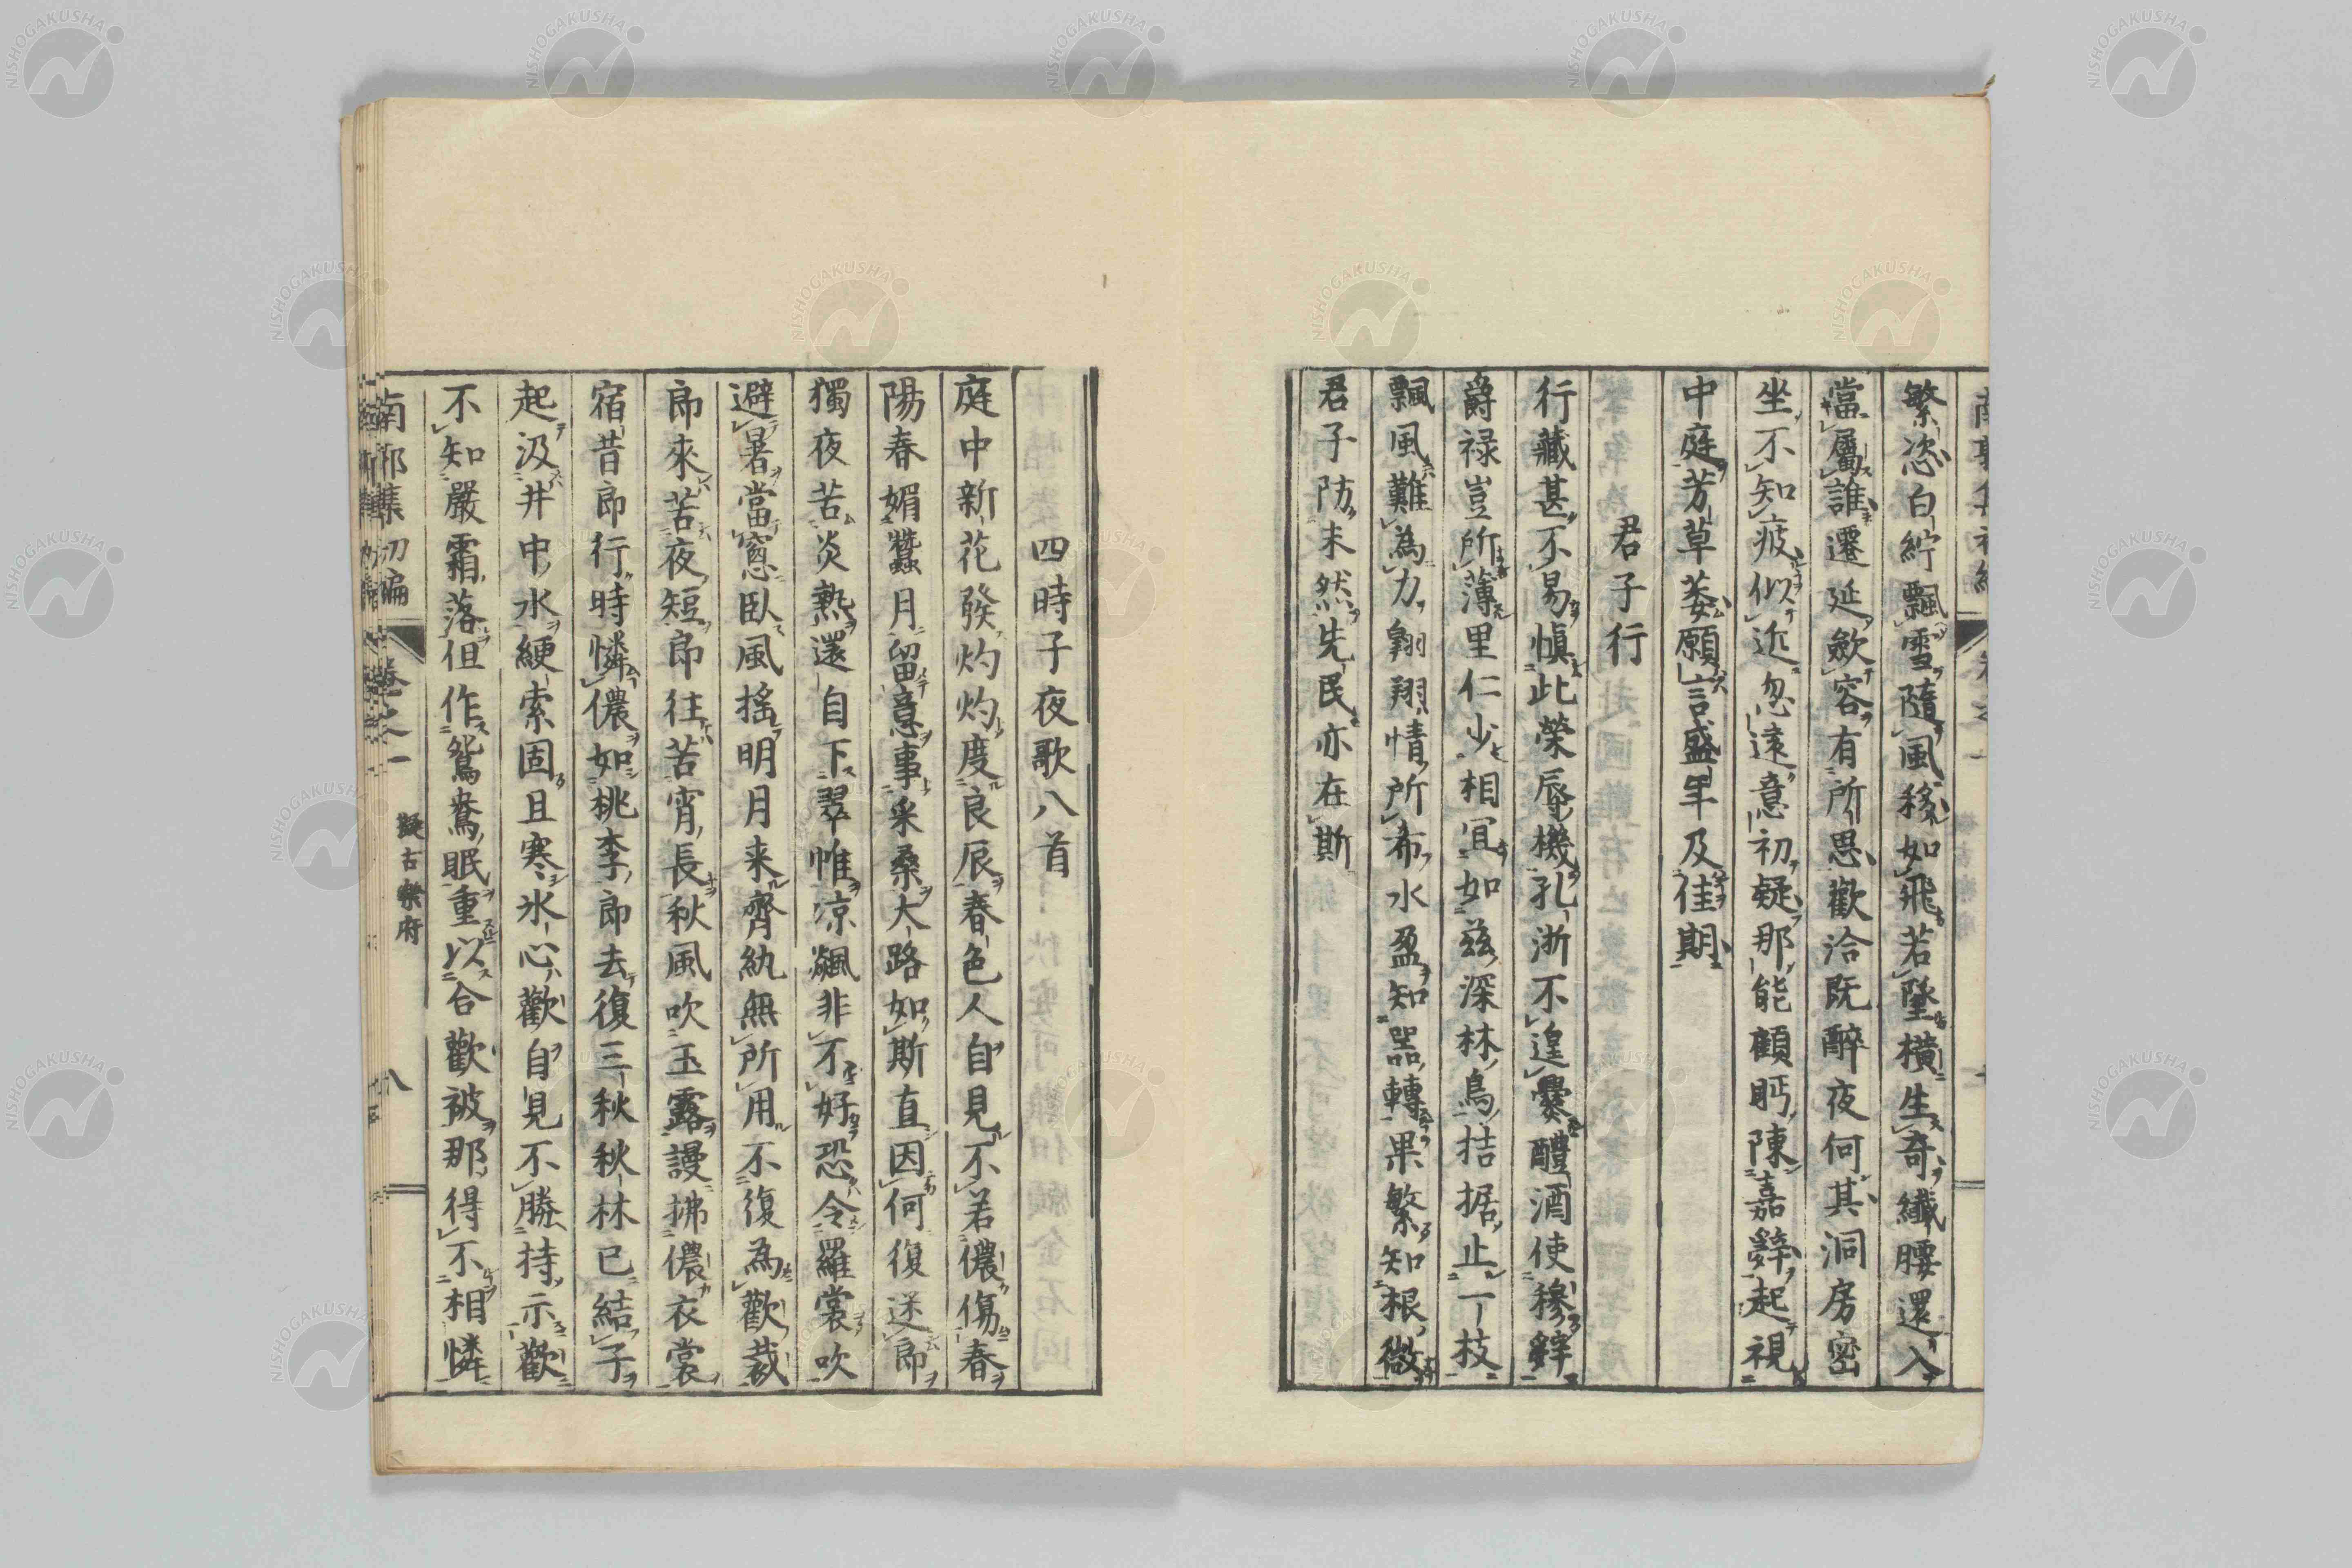 繁恣白紵飄雪隨風移如飛若墜橫生奇纖腰還入
當屬誰遷延斂容有所思歡洽既醉夜何其洞房密
坐不知疲似近忽遠意初疑那能顧眄陳嘉辭起視
中庭芳草萎願言盛年及佳期
君子行
行藏甚不易愼此榮辱機孔浙不遑爨醴酒使穆辭
爵祿豈所薄里仁少相宜如茲深林鳥拮据止一枝
飄風難為力翱翔情所希水盈知器轉果繁知根微
君子防未然先民亦在斯
四時子夜歌八首
庭中新花發灼灼度良辰春色人自見不若儂傷春
陽春媚蠶月留意事采桑大路如斯直因何復送郎
獨夜苦炎熱還自下翠帷涼飆非不好恐令羅裳吹
避暑當窓臥風搖明月来齊紈無所用不復為歡裁
郎來苦夜短郎往苦宵長秋風吹玉露謾拂儂衣裳
宿昔郎行時憐儂如桃李郎去復三秋秋林已結子
起汲井中水綆索固且寒氷心歡自見不勝持示歡
不知嚴霜落但作鴛鴦眠重以合歡被那得不相憐
南郭集初編 卷之一 擬古樂府 八
NISHOGAKUSHA